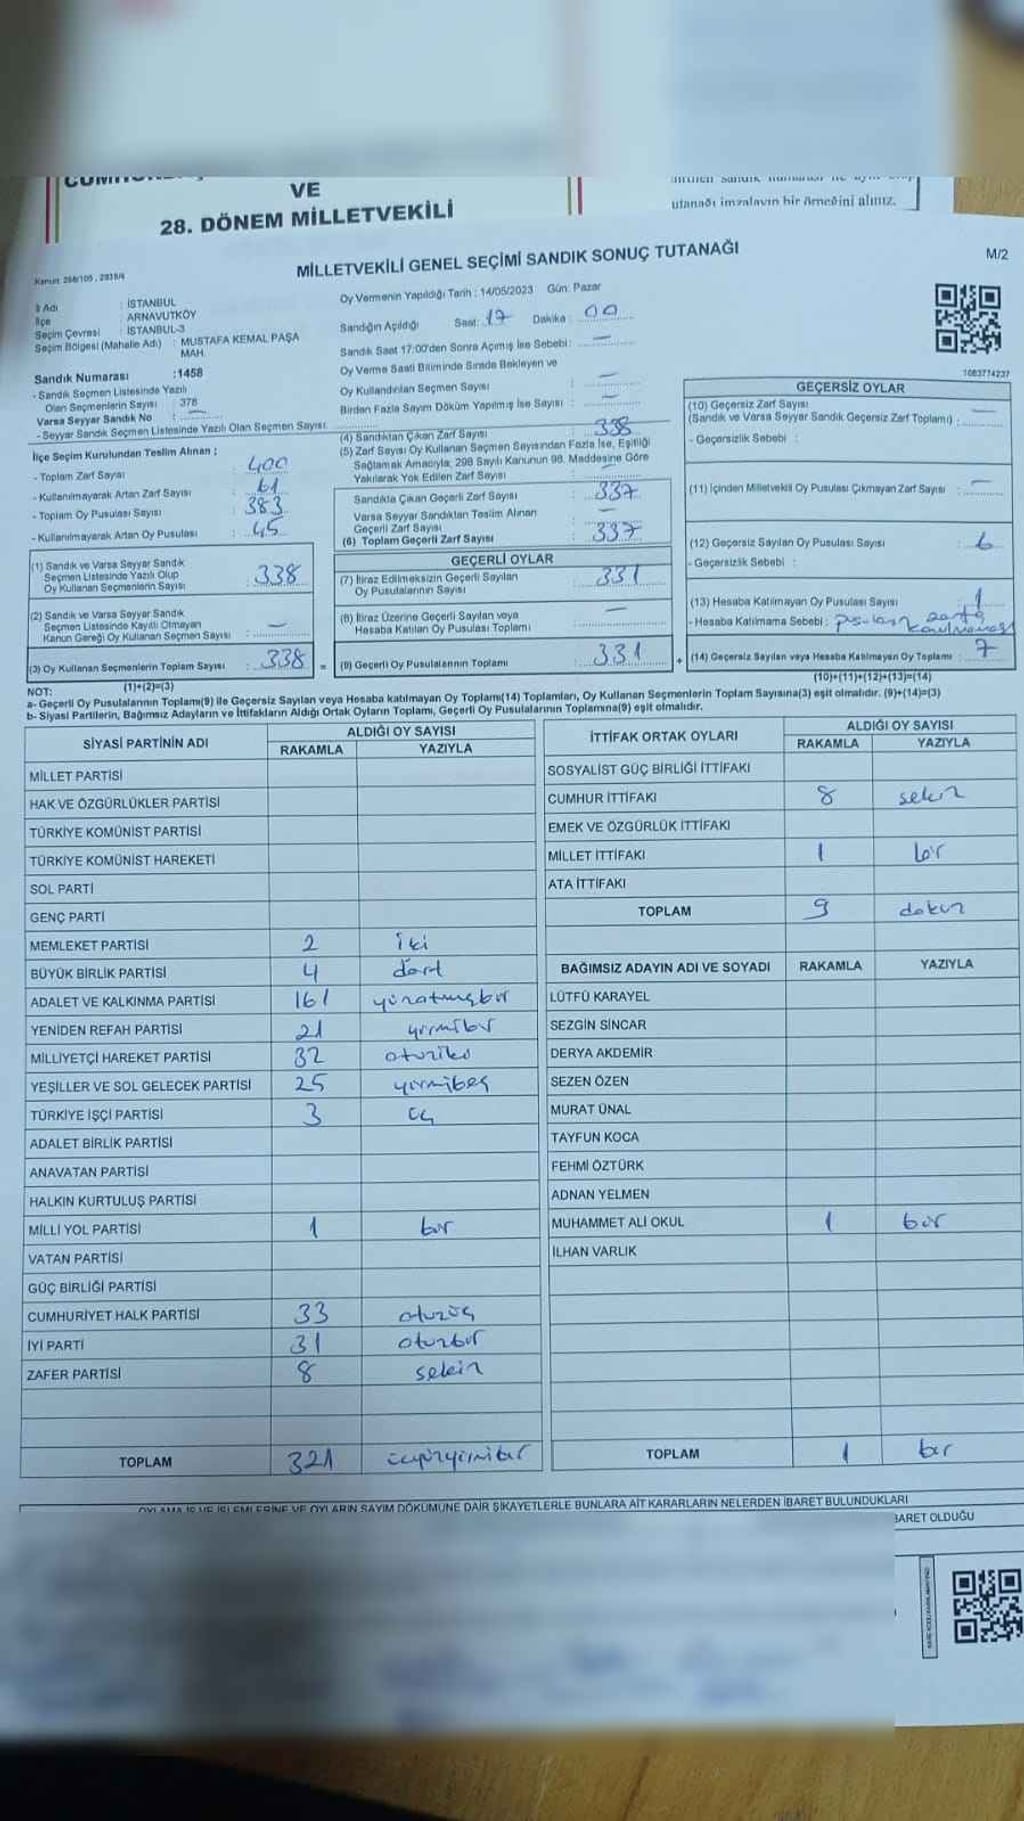 VE
28. DÖNEM MİLLETVEKİLİ
utanağı imzalayın bir örneğini alınız.
MİLLETVEKİLİ GENEL SEÇİMİ SANDIK SONUÇ TUTANAĞI
M/2
İl Adı : İSTANBUL
İlçe : ARNAVUTKÖY
Seçim Çevresi : İSTANBUL-3
Seçim Bölgesi (Mahalle Adı) : MUSTAFA KEMAL PAŞA MAH.
Sandık Numarası :1458
- Sandık Seçmen Listesinde Yazılı
Olan Seçmenlerin Sayısı : 378
Varsa Seyyar Sandık No : —
- Seyyar Sandık Seçmen Listesinde Yazılı Olan Seçmen Sayısı
İlçe Seçim Kurulundan Teslim Alınan ;
- Toplam Zarf Sayısı : 400
- Kullanılmayarak Artan Zarf Sayısı : 61
- Toplam Oy Pusulası Sayısı : 383
- Kullanılmayarak Artan Oy Pusulası : 45
(1) Sandık ve Varsa Seyyar Sandık
Seçmen Listesinde Yazılı Olup
Oy Kullanan Seçmenlerin Sayısı : 338
(2) Sandık ve Varsa Seyyar Sandık
Seçmen Listesinde Kayıtlı Olmayan
Kanun Gereği Oy Kullanan Seçmen Sayısı : —
(3) Oy Kullanan Seçmenlerin Toplam Sayısı : 338 =
(1)+(2)=(3)
Oy Vermenin Yapıldığı Tarih : 14/05/2023 Gün: Pazar
Sandığın Açıldığı Saat: 17 Dakika : 00
Sandık Saat 17:00'den Sonra Açımış İse Sebebi: —
Oy Verme Saati Bitiminde Sırada Bekleyen ve
Oy Kullandırılan Seçmen Sayısı : —
Birden Fazla Sayım Döküm Yapılmış İse Sayısı : —
(4) Sandıktan Çıkan Zarf Sayısı : 338
(5) Zarf Sayısı Oy Kullanan Seçmen Sayısından Fazla İse, Eşitliği
Sağlamak Amacıyla, 298 Sayılı Kanunun 98. Maddesine Göre
Yakılarak Yok Edilen Zarf Sayısı : —
Sandıkta Çıkan Geçerli Zarf Sayısı : 337
Varsa Seyyar Sandıktan Teslim Alınan
Geçerli Zarf Sayısı : —
(6) Toplam Geçerli Zarf Sayısı : 337
GEÇERLİ OYLAR
(7) İtiraz Edilmeksizin Geçerli Sayılan
Oy Pusulalarının Sayısı : 331
(8) İtiraz Üzerine Geçerli Sayılan veya
Hesaba Katılan Oy Pusulası Toplamı : —
(9) Geçerli Oy Pusulalarının Toplamı : 331 +
1083774237
GEÇERSİZ OYLAR
(10) Geçersiz Zarf Sayısı
(Sandık ve Varsa Seyyar Sandık Geçersiz Zarf Toplamı) : —
- Geçersizlik Sebebi :
(11) İçinden Milletvekili Oy Pusulası Çıkmayan Zarf Sayısı : —
(12) Geçersiz Sayılan Oy Pusulası Sayısı : 6
- Geçersizlik Sebebi :
(13) Hesaba Katılmayan Oy Pusulası Sayısı : 1
- Hesaba Katılmama Sebebi : pusulası zarfa konulmamış
(14) Geçersiz Sayılan veya Hesaba Katılmayan Oy Toplamı : 7
(10)+(11)+(12)+(13)=(14)
NOT:
a- Geçerli Oy Pusulalarının Toplamı(9) ile Geçersiz Sayılan veya Hesaba katılmayan Oy Toplamı(14) Toplamları, Oy Kullanan Seçmenlerin Toplam Sayısına(3) eşit olmalıdır. (9)+(14)=(3)
b- Siyasi Partilerin, Bağımsız Adayların ve İttifakların Aldığı Ortak Oyların Toplamı, Geçerli Oy Pusulalarının Toplamına(9) eşit olmalıdır.
SİYASİ PARTİNİN ADI ALDIĞI OY SAYISI
RAKAMLA YAZIYLA
MİLLET PARTİSİ
HAK VE ÖZGÜRLÜKLER PARTİSİ
TÜRKİYE KOMÜNİST PARTİSİ
TÜRKİYE KOMÜNİST HAREKETİ
SOL PARTİ
GENÇ PARTİ
MEMLEKET PARTİSİ 2 iki
BÜYÜK BİRLİK PARTİSİ 4 dört
ADALET VE KALKINMA PARTİSİ 161 yüzatmışbir
YENİDEN REFAH PARTİSİ 21 yirmibir
MİLLİYETÇİ HAREKET PARTİSİ 32 otuziki
YEŞİLLER VE SOL GELECEK PARTİSİ 25 yirmibeş
TÜRKİYE İŞÇİ PARTİSİ 3 üç
ADALET BİRLİK PARTİSİ
ANAVATAN PARTİSİ
HALKIN KURTULUŞ PARTİSİ
MİLLİ YOL PARTİSİ 1 bir
VATAN PARTİSİ
GÜÇ BİRLİĞİ PARTİSİ
CUMHURİYET HALK PARTİSİ 33 otuzüç
İYİ PARTİ 31 otuzbir
ZAFER PARTİSİ 8 sekiz
TOPLAM 321 üçyüzyirmibir
İTTİFAK ORTAK OYLARI ALDIĞI OY SAYISI
RAKAMLA YAZIYLA
SOSYALİST GÜÇ BİRLİĞİ İTTİFAKI
CUMHUR İTTİFAKI 8 sekiz
EMEK VE ÖZGÜRLÜK İTTİFAKI
MİLLET İTTİFAKI 1 bir
ATA İTTİFAKI
TOPLAM 9 dokuz
BAĞIMSIZ ADAYIN ADI VE SOYADI RAKAMLA YAZIYLA
LÜTFÜ KARAYEL
SEZGİN SİNCAR
DERYA AKDEMİR
SEZEN ÖZEN
MURAT ÜNAL
TAYFUN KOCA
FEHMİ ÖZTÜRK
ADNAN YELMEN
MUHAMMET ALİ OKUL 1 bir
İLHAN VARLIK
TOPLAM 1 bir
OYLAMA İŞ VE İŞLEMLERİNE VE OYLARIN SAYIM DÖKÜMÜNE DAİR ŞİKAYETLERLE BUNLARA AİT KARARLARIN NELERDEN İBARET BULUNDUKLARI
BARET OLDUĞU